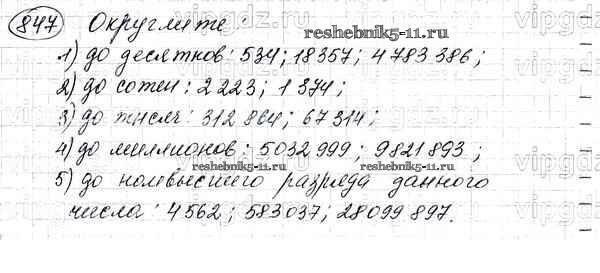 847 Округлите:
reshebnik5-11.ru
1) до десятков: 534; 18357; 4 783 386;
2) до сотен: 2 223; 1 374;
3) до тысяч: 312 864; 67 314;
4) до миллионов: 5032 999; 9821 893;
reshebnik5-11.ru reshebnik5-11.ru
5) до наивысшего разряда данного
числа: 4 562; 583 037; 28 099 897.